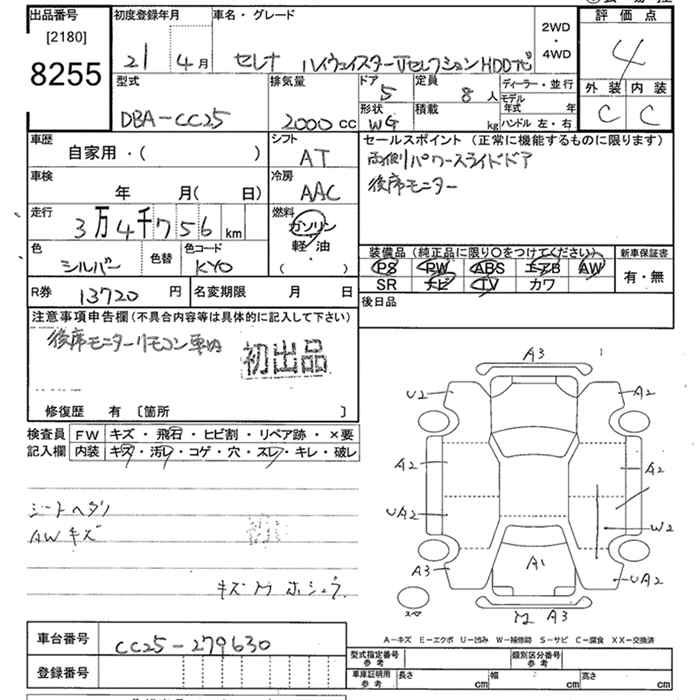 出品番号
[2180]
8255
初度登録年月
21年 4月
車名・グレード
セレナ ハイウェイスターVセレクションHDDナビ
2WD
・
4WD
評価点
4
外装 内装
C C
型式
DBA-CC25
排気量
2000 cc
ドア
5
定員
8 人
形状
WG
積載
kg
ディーラー・並行
モデル年式 年
ハンドル 左・右
車歴
自家用・( )
シフト
AT
セールスポイント (正常に機能するものに限ります)
両側パワースライドドア
後席モニター
車検
年 月( 日)
冷房
AAC
走行
3万4千756 km
燃料
ガソリン
軽・油
・
( )
色
シルバー
色替
色コード
KY0
装備品 (純正品に限り〇をつけてください)
PS PW ABS エアB AW
SR ナビ TV カワ
新車保証書
有・無
R券 13720 円
名変期限 月 日
後日品
注意事項申告欄 (不具合内容等は具体的に記入して下さい)
後席モニターリモコン車内
初出品
修復歴 有 [箇所 ]
検査員 記入欄
FW キズ・飛石・ヒビ割・リペア跡・×要
内装 キズ・汚レ・コゲ・穴・スレ・キレ・破レ
シートヘタリ
AWキズ
キズM ホシュウ
A3
U2
A2
A2
A2
UA2
W2
A3
A1
UA2
スペア
M A3
A-キズ E-エクボ U-凹み W-補修跡 S-サビ C-腐食 XX-交換済
車台番号
CC25-279630
登録番号
型式指定番号 参考
類別区分番号 参考
車庫証明用 参考
長さ cm 幅 cm 高さ cm